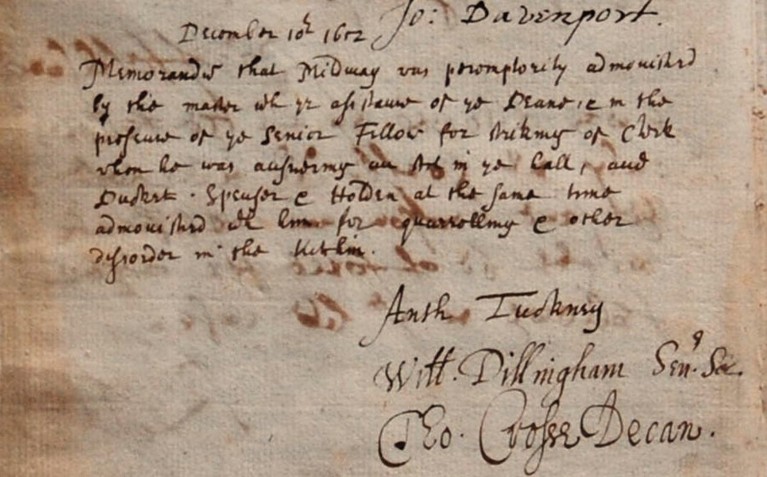 Jo: Davenport.
December 10th 1652
Memorandũ that Mildmay was peremptorily admonishd
by the master wth ye assistance of ye Deane, & in the
presence of ye Senior Fellow for striking of Clerk
when he was answering an Act in ye hall, and
Ducket. Spenser & Holden at the same time
admonishd wth him for quarrelling & other
disorder in the kitchin.
Anth Tuckney
Will. Dillingham Senr. Soc.
Tho. Crosse Decan.